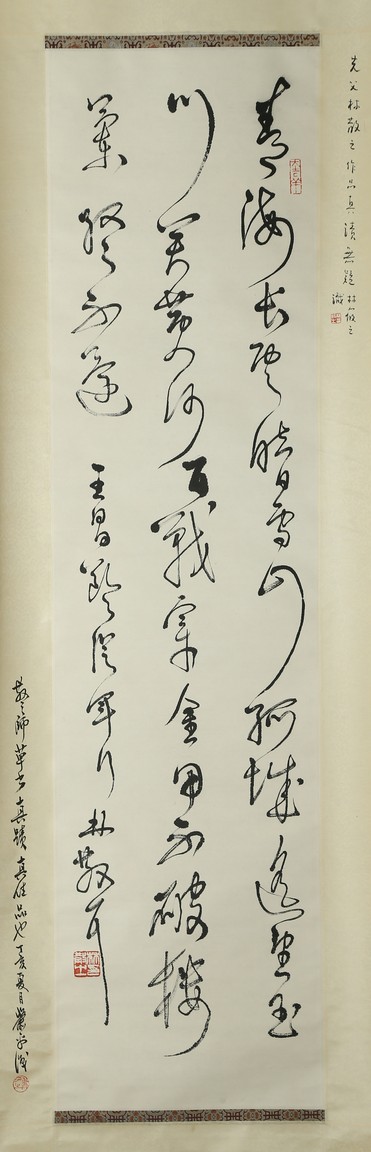 先父林散之作品真蹟無疑 林筱之
識
大吉羊
青海長雲暗雪山孤城遙望玉
門關黃沙百戰穿金甲不破樓
蘭終不還 王昌齡從軍行 林散耳
散之師草書真蹟真佳品也丁亥夏月 識